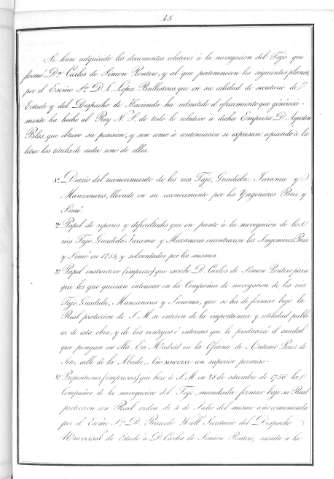 48
Se han adquirido los documentos relativos á la navegacion del Tajo que
formó Dn. Carlos de Simon Pontero, y al que pertenecieron los siguientes planos,
por el Escmo Sr. D. L. Lopez Ballesteros que en su calidad de secretario de
Estado y del Despacho de Hacienda ha admitido el ofrecimiento que generosa-
mente ha hecho al Rey N. S. de todo lo relativo á dicha Empresa D. Agustin
que obtuvo su permiso, y son como á continuacion se espresan
los titulos de cada uno de ellos.
1º Diario del reconocimiento de los rios Tajo, Guadiela, Jarama y
Manzanares, llevado en su reconocimiento por los Yngenieros Briz y
Simó
2º Papel de reparos y dificultades que en punto á la navegacion de los
rios Tajo, Guadiela, Jarama y Manzanares encontraron los Yngenieros Briz
y Simó en 1755, y solventadas por los mismos
3º Papel instructivo (impreso) que escribió D. Carlos de Simon Pontero para
los que quisieren interesar en la Compañia de navegacion de los rios
Tajo, Guadiela, Manzanares y Jarama, que se ha de formar bajo la
Real proteccion de S. M. en noticia de la importancia y utilidad publi-
ca de esta obra, y de las ventajas é intereses que le producirá el caudal
que pongan en ella. En Madrid en la Oficina de Antonio Perez de
Soto, calle de la Abada, con superior permiso
4º Proposiciones (impresas) que hizo á S. M. en 28 de setiembre de 1756 la
Compañia de la navegacion del Tajo, mandada formar bajo su Real
proteccion con Real orden de 4 de Julio del mismo año comunicada
por el Escmo Sr. D. Ricardo Wall Secretario del Despacho
Universal de Estado á D. Carlos de Simon Pontero,